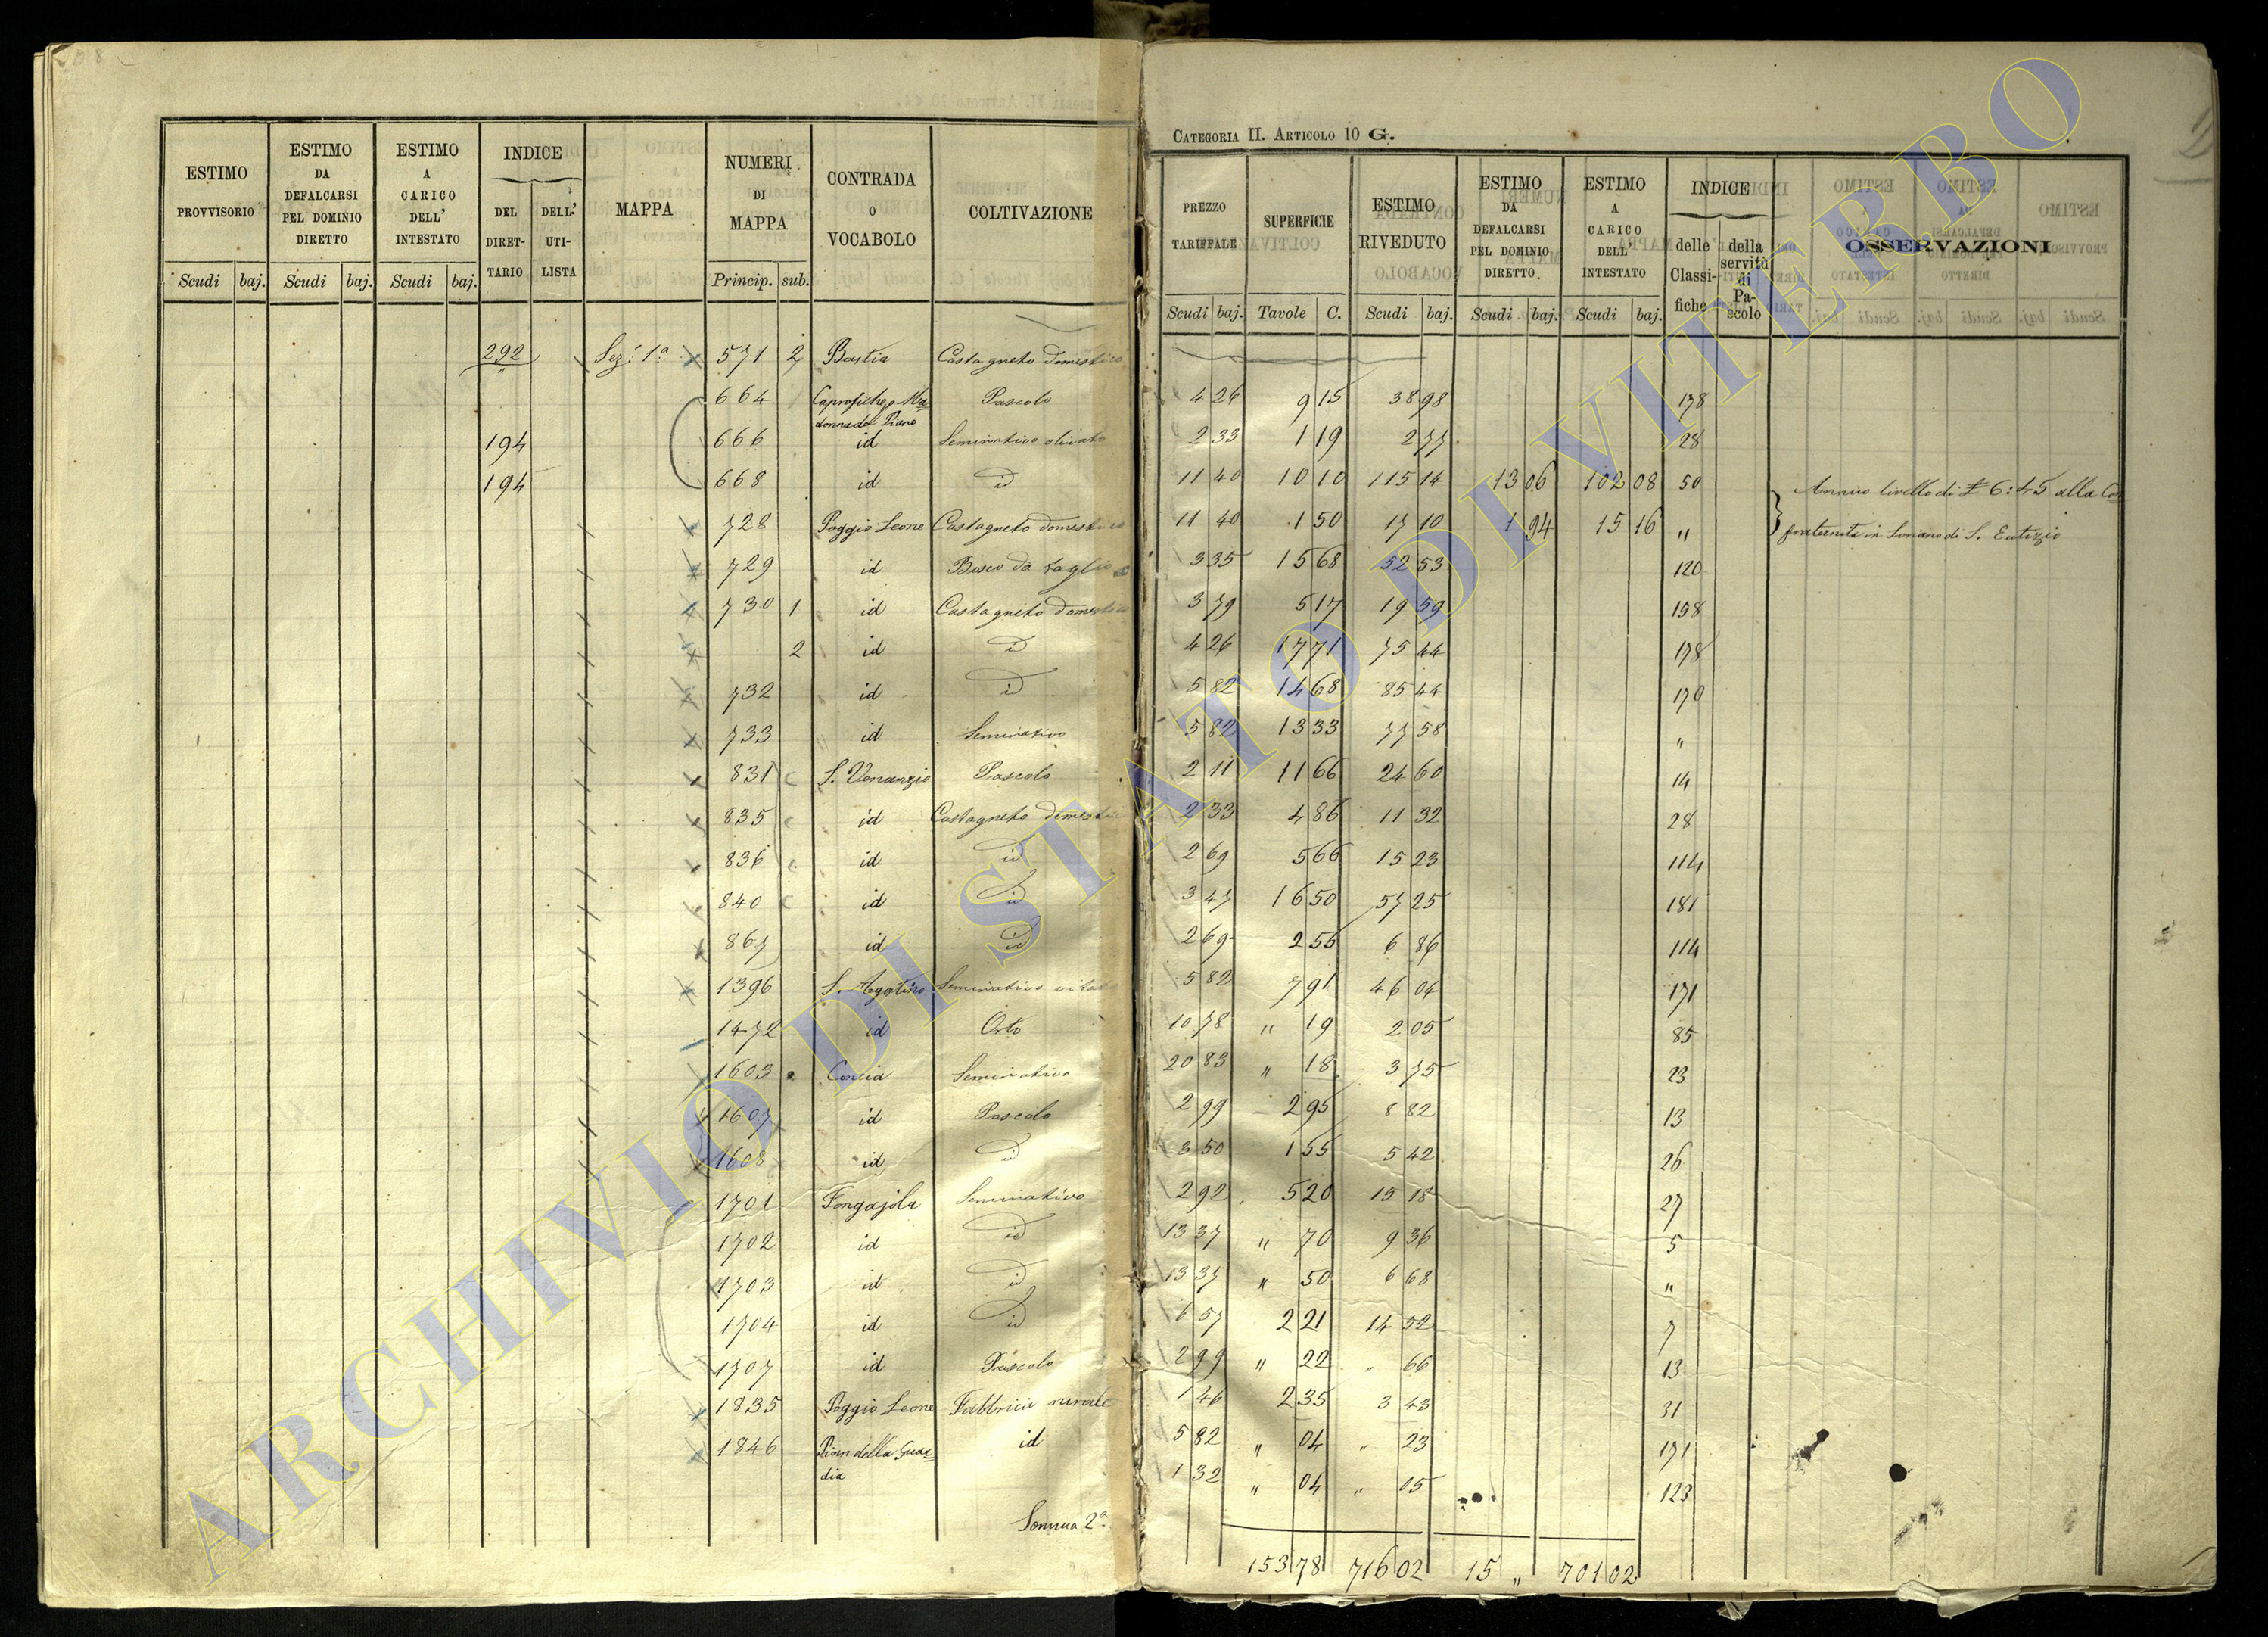 CATEGORIA II. ARTICOLO 10 G.
ESTIMO PROVVISORIO Scudi baj.
ESTIMO DA DEFALCARSI PEL DOMINIO DIRETTO Scudi baj.
ESTIMO A CARICO DELL' INTESTATO Scudi baj.
INDICE DEL DIRET- TARIO DELL' UTI- LISTA
MAPPA
NUMERI DI MAPPA Princip. sub.
CONTRADA O VOCABOLO
COLTIVAZIONE
PREZZO TARIFFALE Scudi baj.
SUPERFICIE Tavole C.
ESTIMO RIVEDUTO Scudi baj.
ESTIMO DA DEFALCARSI PEL DOMINIO DIRETTO. Scudi baj.
ESTIMO A CARICO DELL' INTESTATO Scudi baj.
INDICE delle Classi- fiche della servitù di Pa- scolo
OSSERVAZIONI
292 Sez: 1a 571 2 Bastia Castagneto domestico
664 Caprofichejo Ma- donna del Piano Pascolo
194 666 id Seminativo olivato
194 668 id id
728 Poggio Leone Castagneto domestico
729 id Bosco da taglio
730 1 id Castagneto domestico
2 id id
732 id id
733 id Seminativo
831 S. Venanzio Pascolo
835 id Castagneto domestico
836 id id
840 id id
867 id id
1396 S. Agotino Seminativo vitato
1472 id Orto
1603 Seminativo
1607 id Pascolo
1608 id id
1701 Fongajola Seminativo
1702 id id
1703 id id
1704 id id
1707 id Pascolo
1835 Poggio Leone Fabbrica rurale
1846 Pian della Guar- dia id
Somma 2a
4 26 9 15 38 98 178
2 33 1 19 2 77 28
11 40 10 10 115 14 13 06 102 08 50 Annuo livello di £ 6:45 alla Con-
11 40 1 50 17 10 1 94 15 16 " fraternita in Soriano di S. Eutizio
3 35 15 68 52 53 120
3 79 5 17 19 59 158
4 26 17 71 75 44 178
5 82 14 68 85 44 170
5 82 13 33 77 58 "
2 11 11 66 24 60 14
2 33 4 86 11 32 28
2 69 5 66 15 23 114
3 47 16 50 57 25 181
2 69 2 55 6 86 114
5 82 7 91 46 04 171
10 78 " 19 2 05 85
20 83 " 18 3 75 23
2 99 2 95 8 82 13
3 50 1 55 5 42 26
2 92 5 20 15 18 27
13 37 " 70 9 36 5
13 37 " 50 6 68 "
6 57 2 21 14 52 7
2 99 " 22 " 66 13
1 46 2 35 3 43 31
5 82 " 04 " 23 171
1 32 " 04 " 05 123
153 78 716 02 15 " 701 02
ARCHIVIO DI STATO DI VITERBO